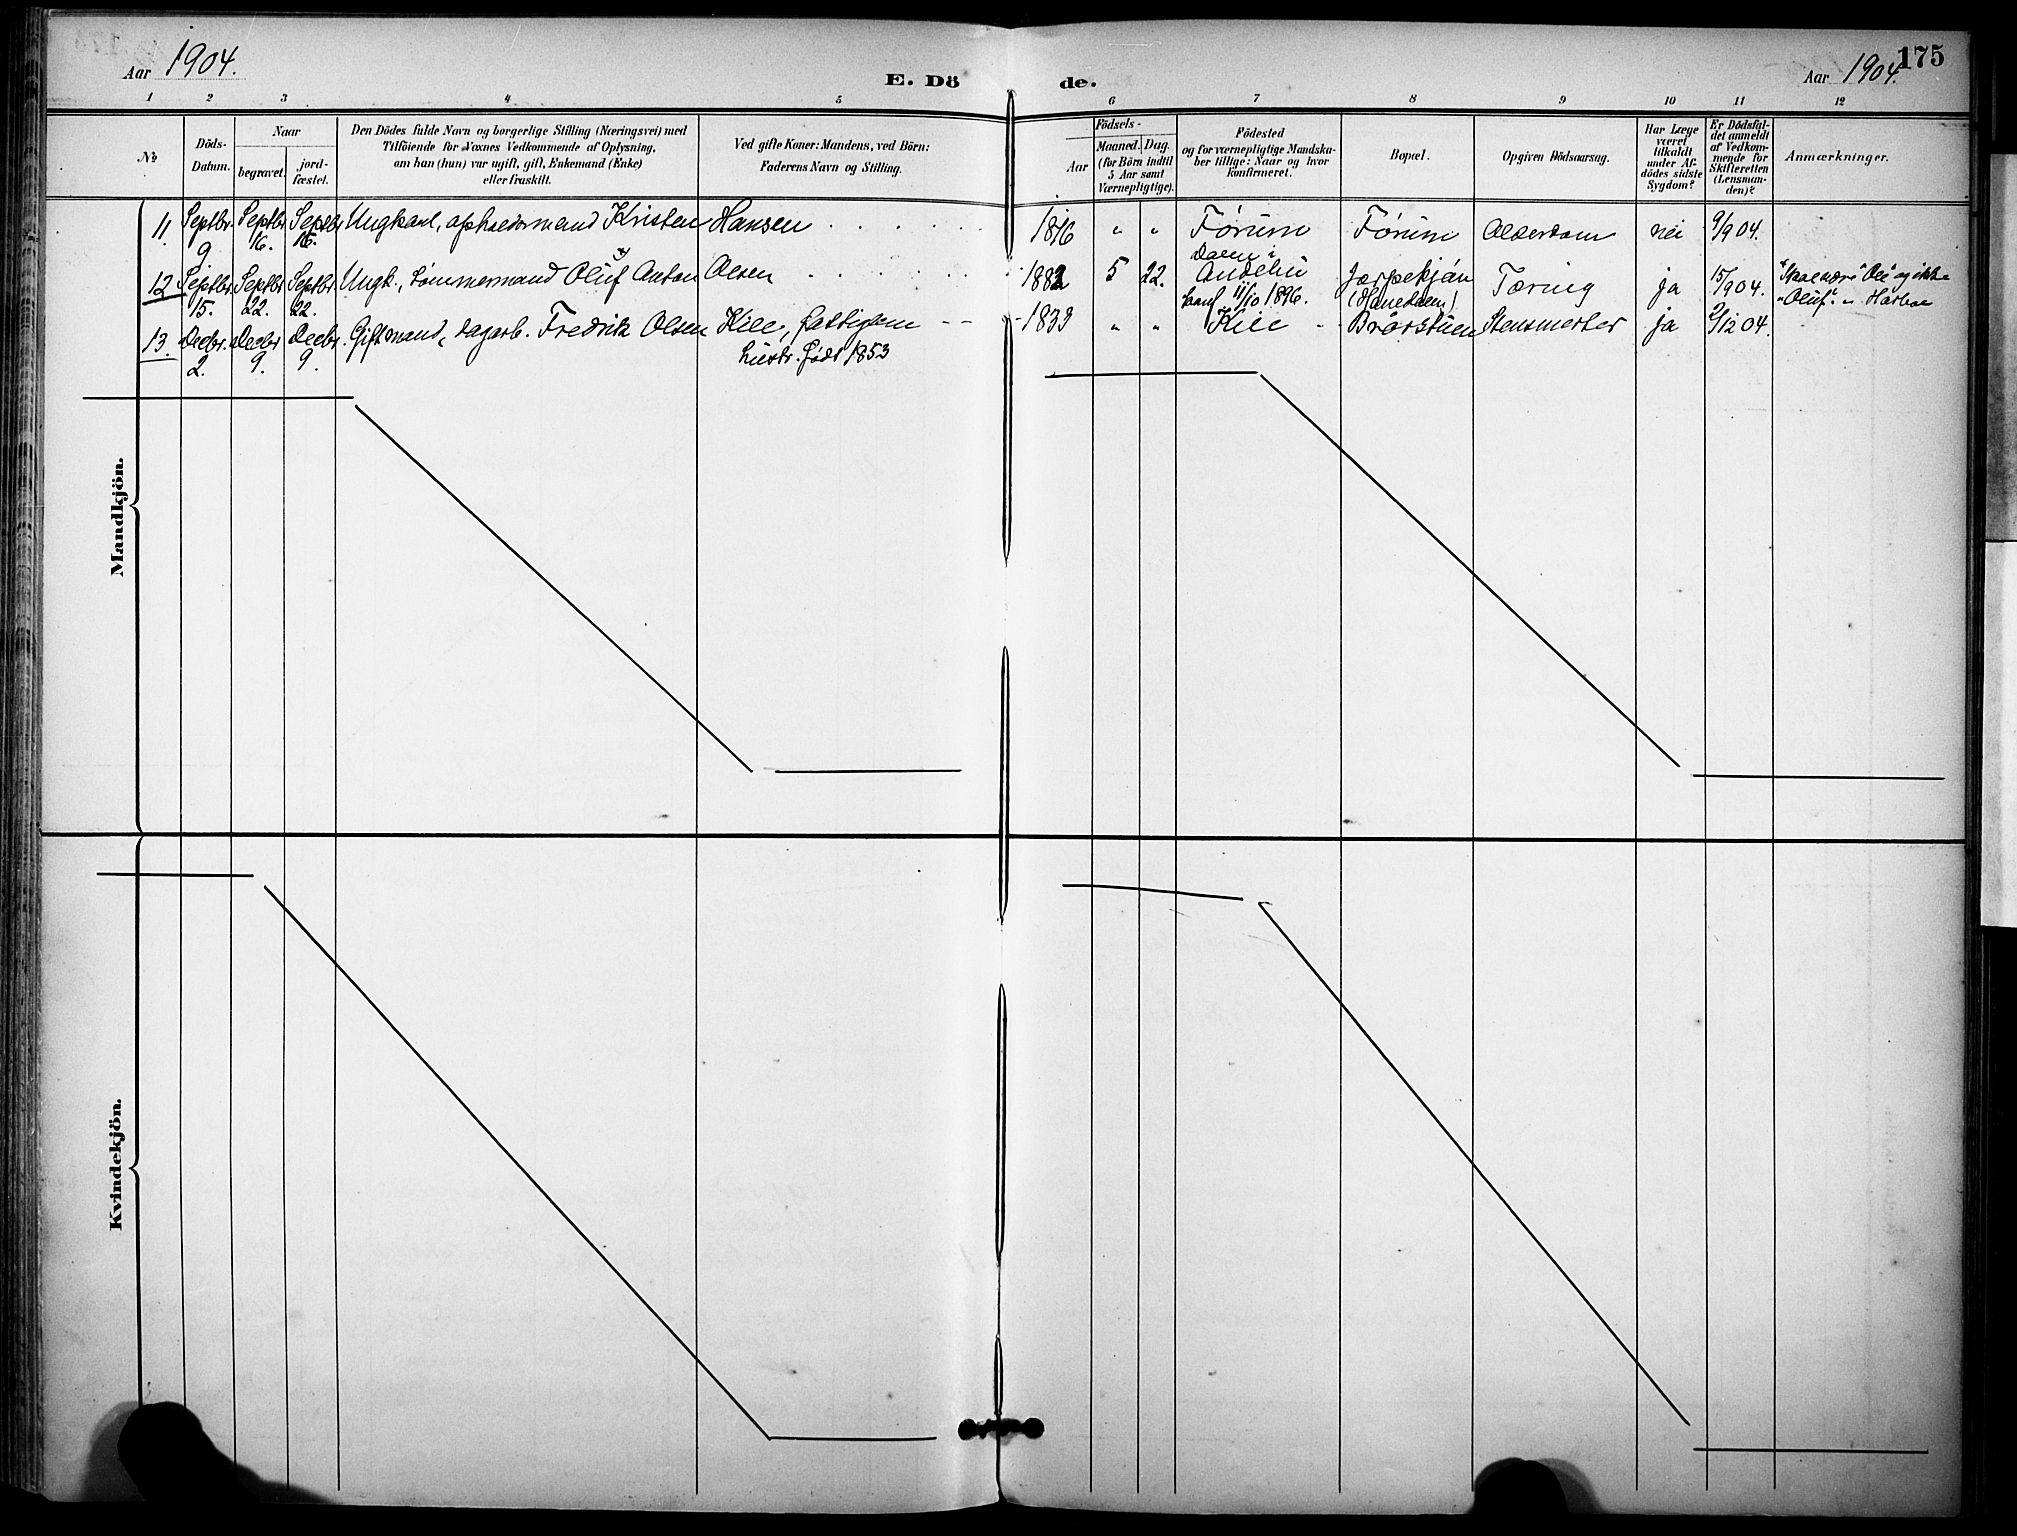 Aar 1904.
E. Dö
de.
Aar 1904.
175
1 2 3 4 5 6 7 8 9 10 11 12
No
Döds-
Datum.
Naar
begravet.
jord-
fæstet.
Den Dödes fulde Navn og borgerlige Stilling (Næringsvei) med
Tilföiende for Voxnes Vedkommende af Oplysning,
om han (hun) var ugift, gift, Enkemand (Enke)
eller fraskilt.
Ved gifte Koner: Mandens, ved Börn:
Faderens Navn og Stilling.
Födsels-
Aar
Maaned.
Dag.
(for Börn indtil
5 Aar samt
Værnepligtige).
Födested
og for værnepligtige Mandska-
ber tillige: Naar og hvor
konfirmeret.
Bopæl.
Opgiven Dödsaarsag.
Har Læge
været
tilkaldt
under Af-
dödes sidste
Sygdom?
Er Dödsfal-
det anmeldt
af Vedkom-
mende for
Skifteretten
(Lensman-
den)?
Anmærkninger.
Mandkjön.
11. Septbr. 9 Septbr 16. Septbr 16. Ungkarl, opholdsmand Kristen Hansen 1816 " " Förum Förum Alderdom nei 9/9 04.
12 Septbr. 15. Septbr 22. Septbr. 22. Ungk., tömmermand Oluf Anton Olsen 1882 5 22. Dalen i
konf 11/10 1896. (Hanedalen) Tæring ja 15/9 04. "Skal være "Ole" og ikke
"Oluf".
13. Decbr. 2. Decbr 9. Decbr. 9. Giftmand, dagarb. Fredrik Olsen Kile, fattiglem 1833 " " Kile Brörstuen ja 2/12 04.
hustr. födt 1853
Kvindekjön.